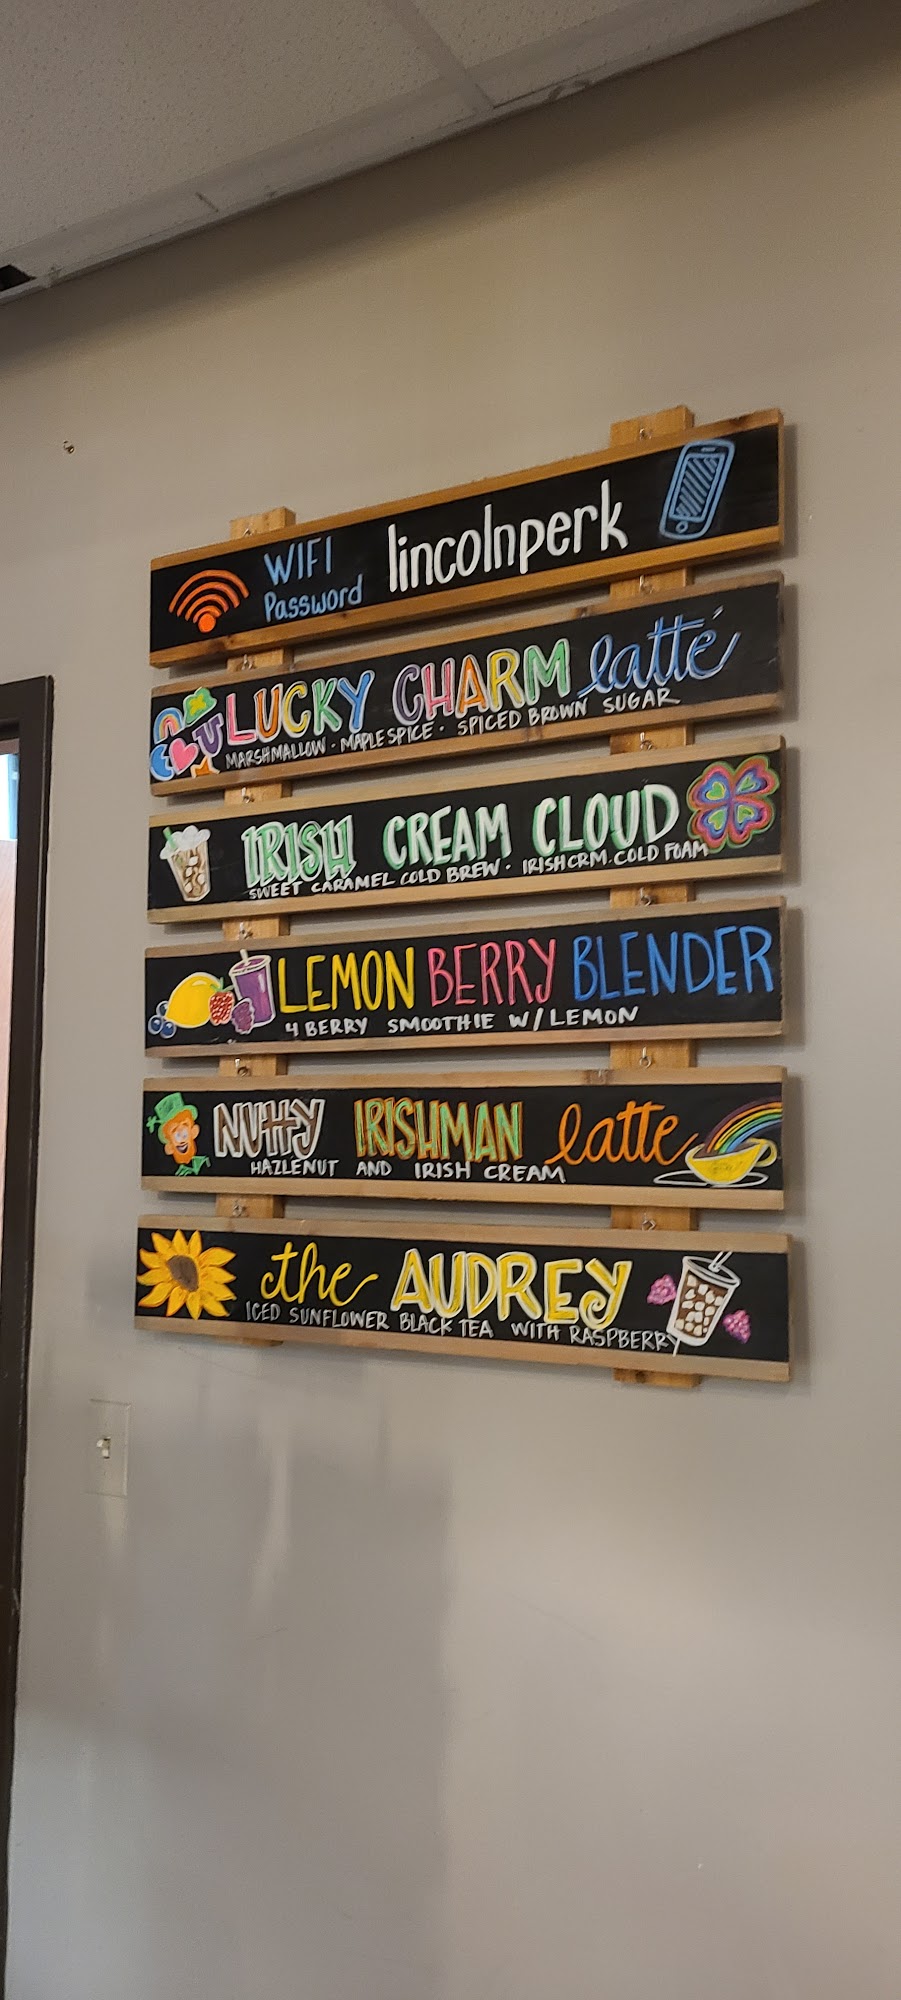 WIFI
Password
lincolnperk
LUCKY CHARM latté
MARSHMALLOW · MAPLE SPICE · SPICED BROWN SUGAR
IRISH CREAM CLOUD
SWEET CARAMEL COLD BREW · IRISH CRM. COLD FOAM
LEMON BERRY BLENDER
4 BERRY SMOOTHIE W/ LEMON
NUTTY IRISHMAN latte
HAZLENUT AND IRISH CREAM
the AUDREY
ICED SUNFLOWER BLACK TEA WITH RASPBERRY